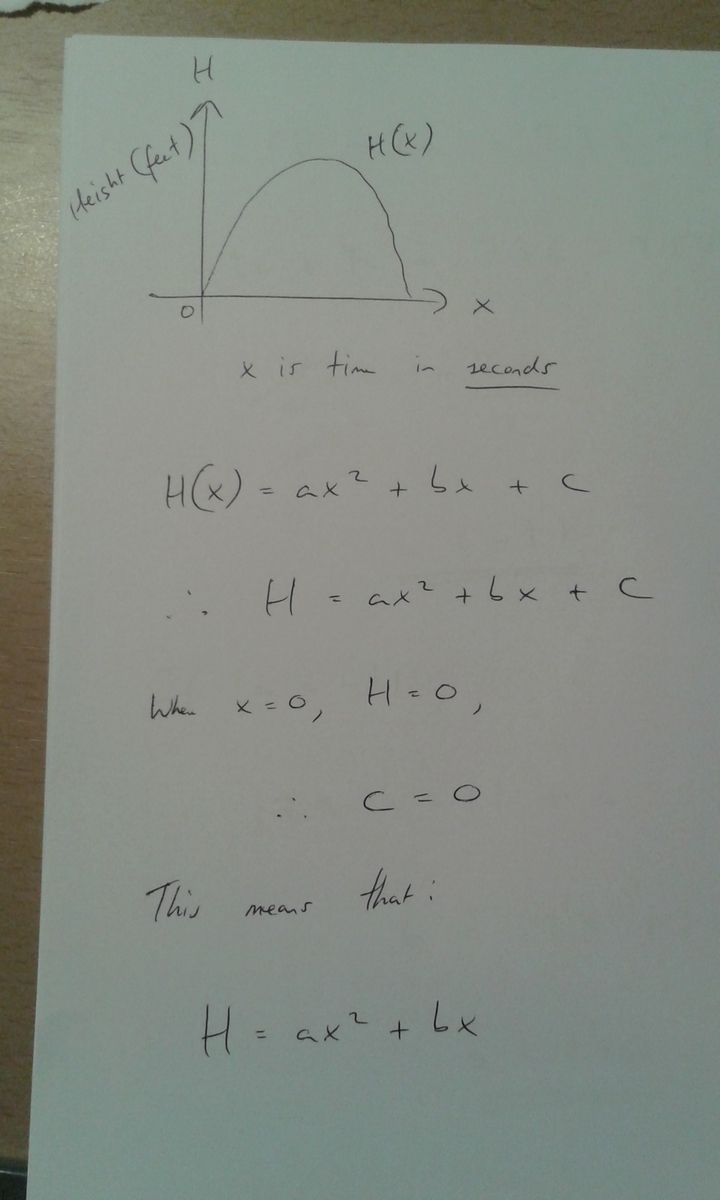 H
Height (feet)
H(x)
O
x
x is time in seconds
H(x) = ax² + bx + c
∴ H = ax² + bx + c
When x = 0, H = 0,
∴ C = 0
This means that:
H = ax² + bx